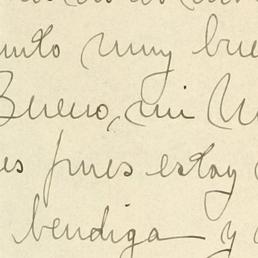 muy bue
Bueno, mi
es pues estoy
bendiga y